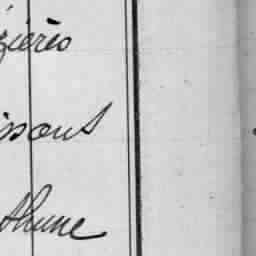 zières
ssons
thune